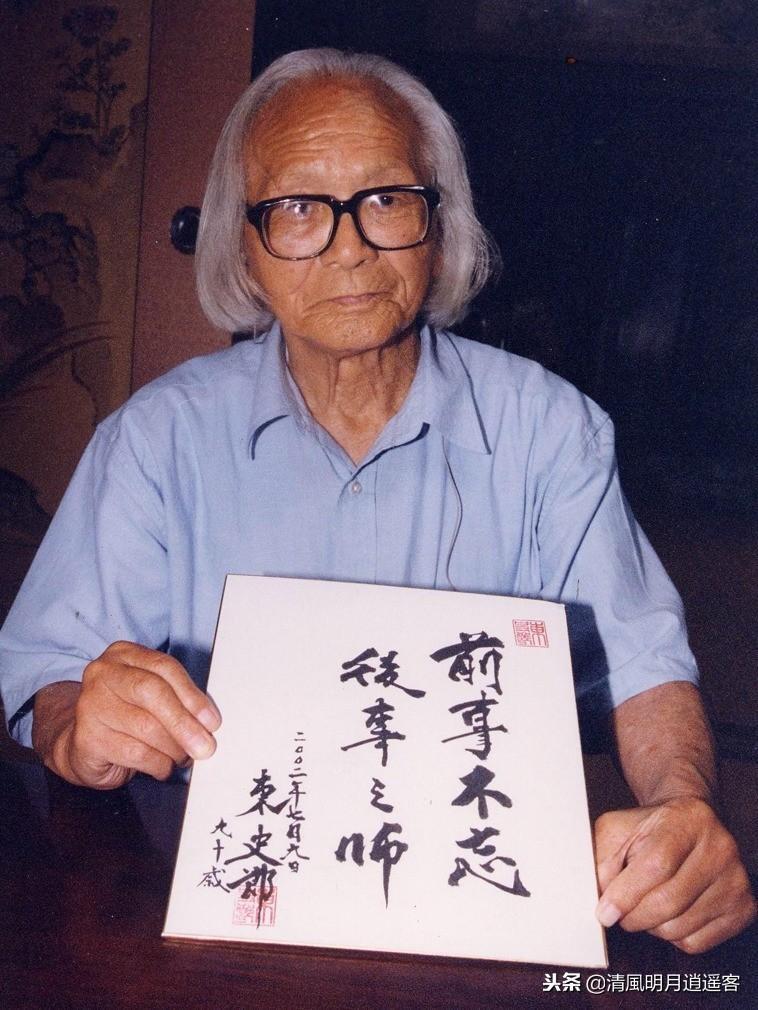 前事不忘
後事之師
二〇〇二年七月九日
東史郎
九十歳
头条 @清風明月逍遥客